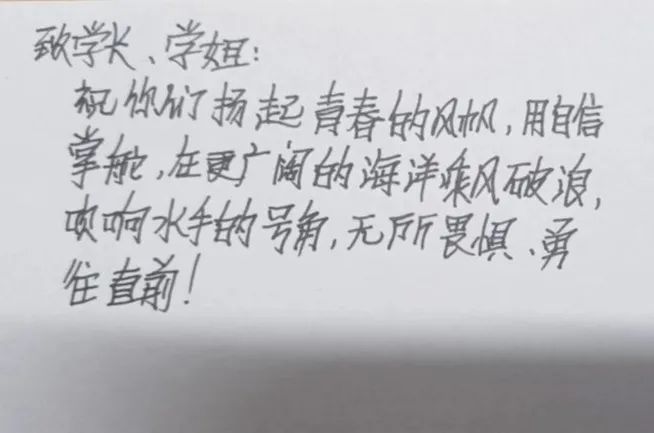 致学长、学姐:
祝你们扬起青春的风帆,用自信
掌舵,在更广阔的海洋乘风破浪,
吹响水手的号角,无所畏惧、勇
往直前!